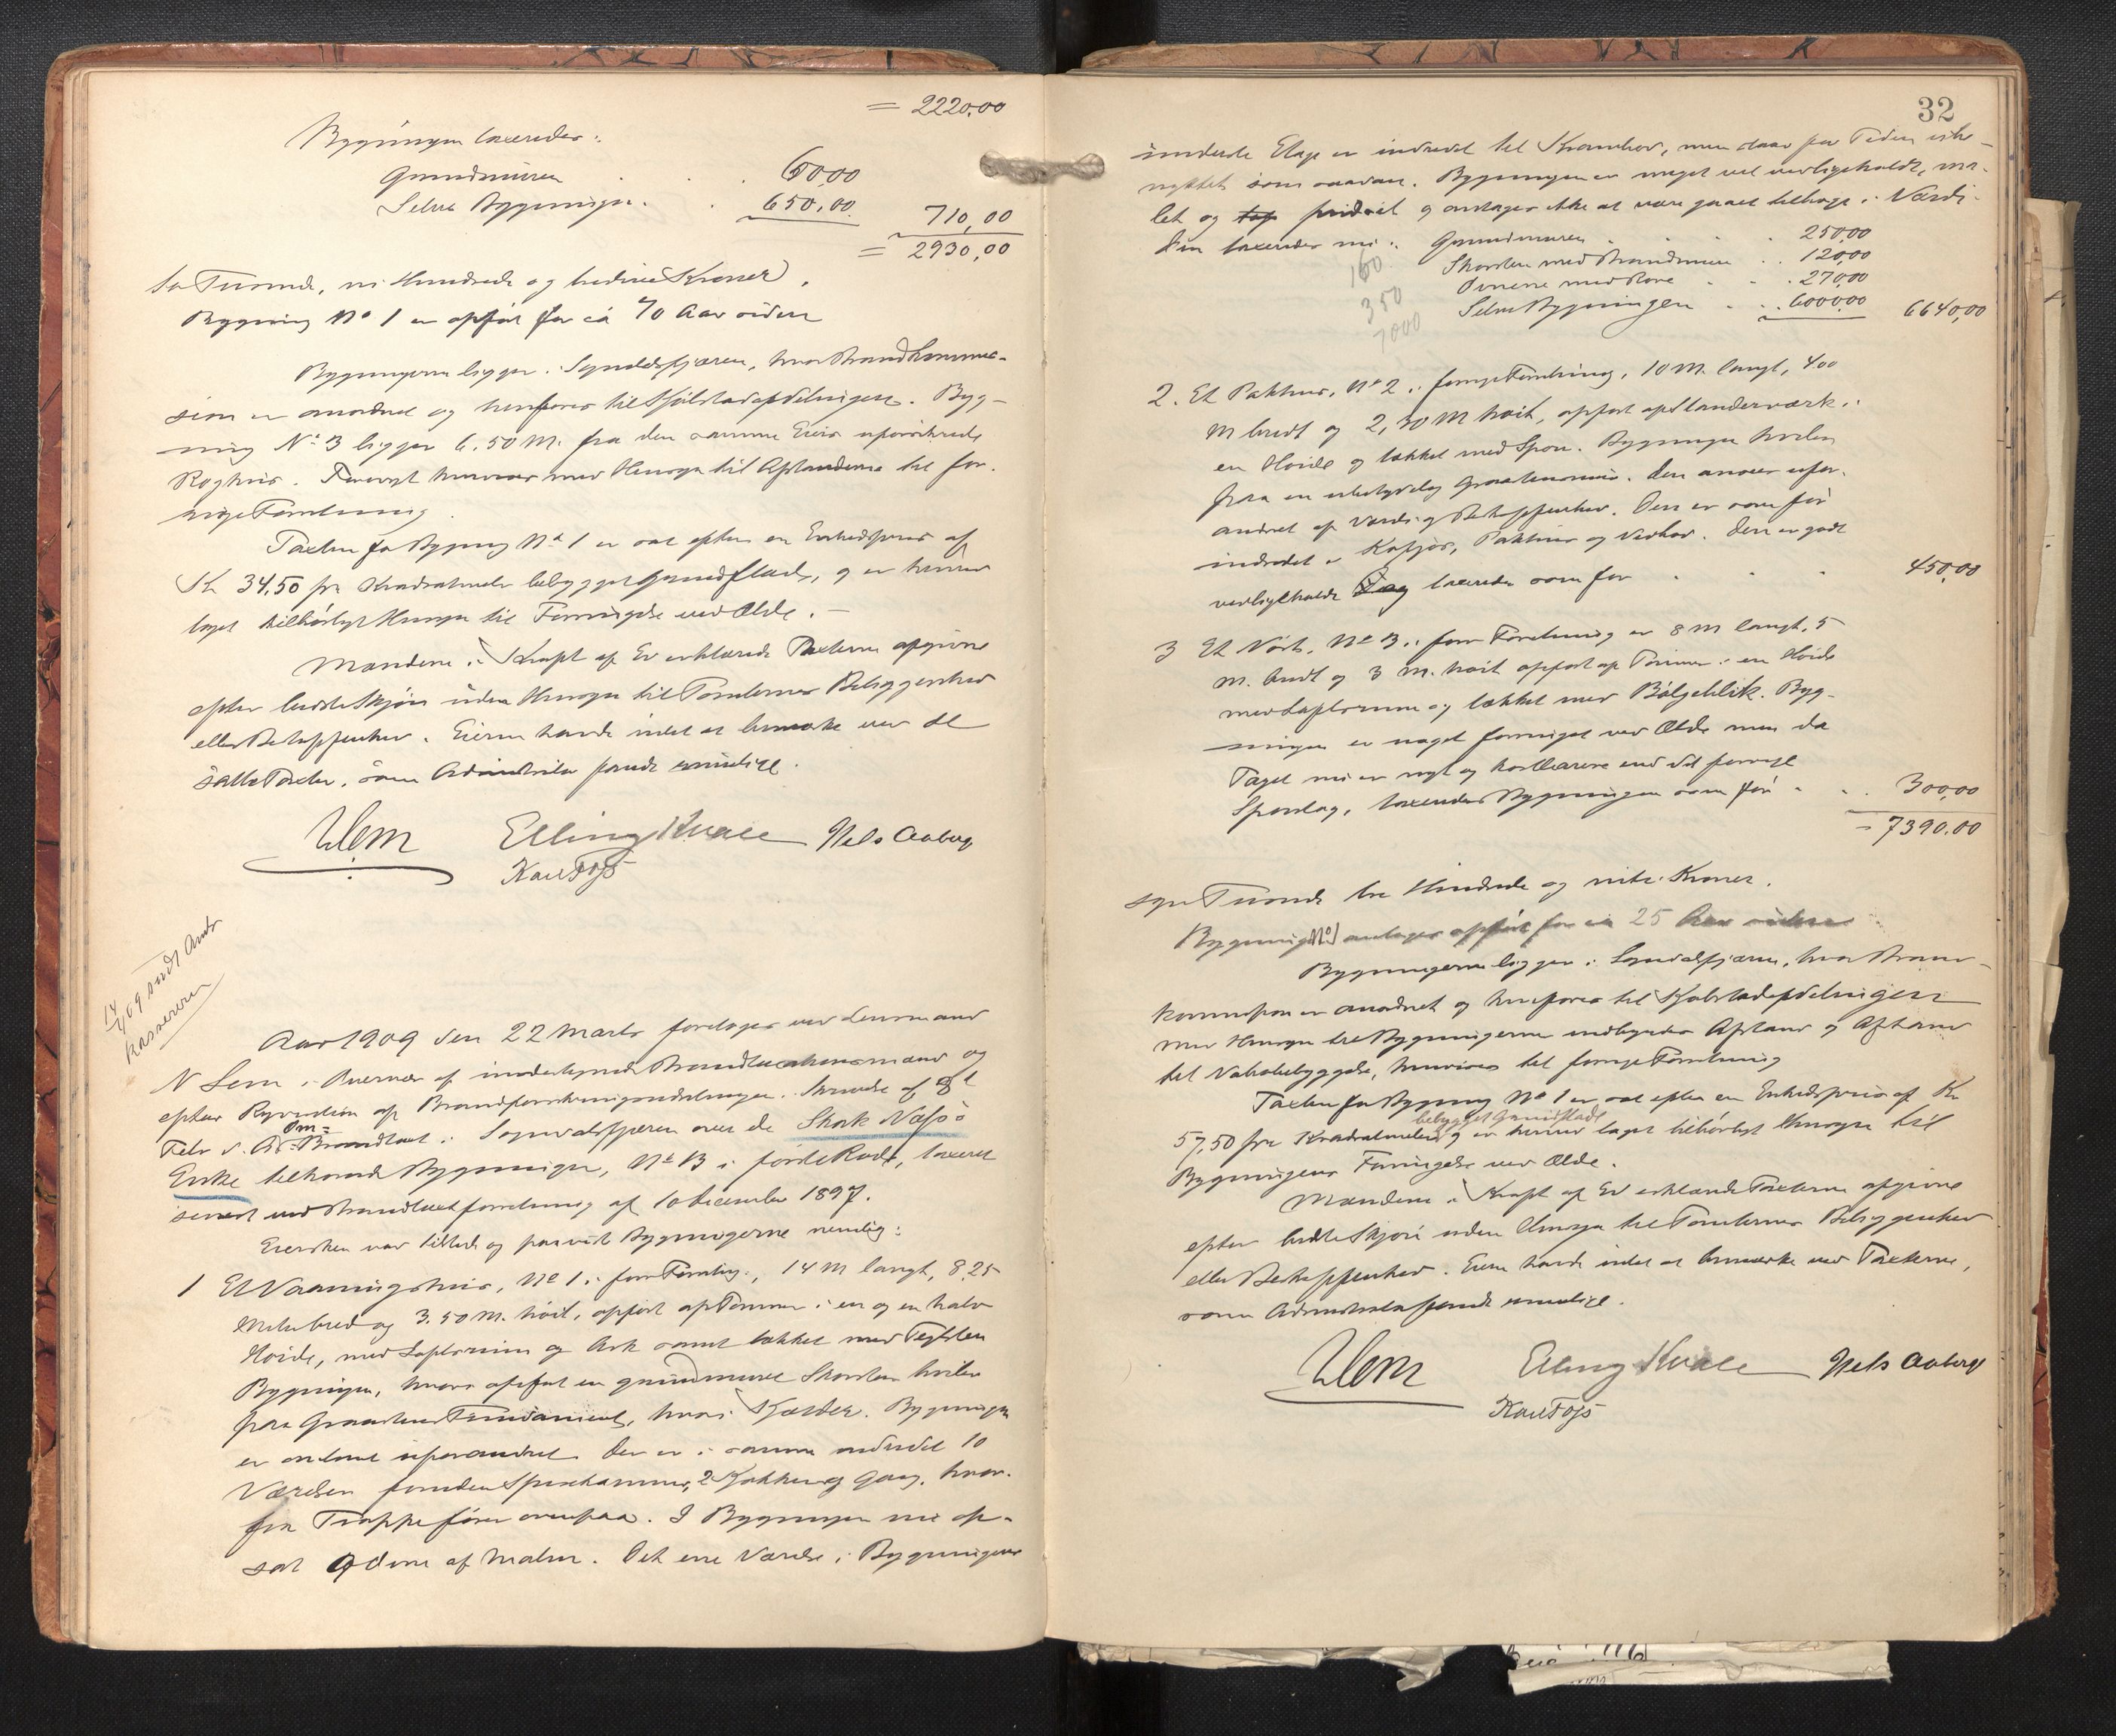 = 2220,00
Bygningen taxeredes:
Grundmuren . . 60,00
Selve Bygningen . . 650,00 710,00
= 2930,00
to Tusinde, ni Hundrede og tredive Kroner.
Bygning No 1 er opført for ca 70 Aar siden
Bygningerne ligger i Sogndalsfjæren, hvor Brandkommis-
sion er anordnet og henføres til Kjøbstadafdelingen. Byg-
ning No 3 ligger 6,50 M. fra den samme Eiers uforsikrede
Røghus. Forøvrigt henvises med Hensyn til Afstandene til for-
rige Forretning.
Taxten for Bygning No 1 er sat efter en Enhedspris af
Kr 34,50 pr Kvadratmeter bebygget Grundflade, og er herved
taget tilbørligt Hensyn til Forringelse ved Ælde. —
Mændene i Kraft af Ed erklærede Taxterne afgivne
efter bedste Skjøn uden Hensyn til Tomternes Beliggenhed
eller Beskaffenhed. Eieren havde intet at bemærke ved de
satte Taxter, som Administrator fandt rimelige.
Elling Kvale Nels Aaberg
Karl Foss
14/4 09 sendt Amts
kassereren
Aar 1909 den 22 Marts foretoges ved Lensmand
N Lem i Overvær af undertegnede Brandtaxationsmænd og
efter Rekvisition af Brandforsikringsindretningen Skrivelse af 8de
Febr d. A. Om-Brandtaxt i Sogndalsfjæren over de Stork Næss's
Enke tilhørende Bygninger, No 13 i første Rode, taxeret
senest ved Brandtaxtforretning af 10 December 1897.
Eiersken var tilstede og paaviste Bygningerne nemlig:
1 Et Vaaningshus, No 1 i forr Forretng., 14 M langt, 8,25
Meter bred og 3.50 M. høit, opført af Tømmer i en og en halv
Høide, med Løftsrum og Ark samt tækket med Teglsten
Bygningen, hvori opført en grundmuret Skorsten hviler
paa Graastens Fundament, hvori Kjælder. Bygningen
er omtrent uforandret. Der er i samme indredet 10
Værelser foruden Spisekammer, 2 Kjøkken og Gang, hvor-
fra Trappe fører ovenpaa. I Bygningen nu op-
sat 9 Ovne af Malm. Det ene Værelse i Bygningens
32
underste Etage er indredet til Krambod, men staar for Tiden ube-
nyttet som saadan. Bygningen er meget vel vedligeholdt, ma-
let og og antages ikke at være gaaet tilbage i Værdi.
Den taxeredes nu: Grundmuren . . . 250,00
Skorsten med Brandmure . . 120,00
Ovnene med Rør . . . 270,00
Selve Bygningen . . . 6000,00 6640,00
160
350
7000
2. Et Pakhus, No 2 i forrige Forretning, 10 M. langt, 4,00
M bredt og 2,30 M høit, opført af Standerværk i
en Høide og tækket med Spon. Bygningen hviler
paa en ubetydelig Graastensmur. Den ansees ufor-
andret af Værdi og Beskaffenhed. Den er som før
indredet i Kafjøs, Pakhus og Vedbod. Den er godt
vedligeholdt taxeredes som før . . . 450,00
3 Et Nøst, No 3 i forr Forretning er 8 M langt, 5
M. bredt og 3 M. høit opført af Tømmer i en Høide
med Løftsrum og tækket med Bølgeblik. Byg-
ningen er noget forringet ved Ælde men da
Taget nu er nyt og kostbarere end det forrige
Spontag, taxeredes Bygningen som før . . . 300,00
= 7390.00
syv Tusinde tre Hundrede og nitti Kroner.
Bygning No 1 antages opført for ca 25 Aar siden
Bygningerne ligger i Sogndalsfjæren, hvor Brand-
kommission er anordnet og henføres til Kjøbstadafdelingen
Med Hensyn til Bygningernes indbyrdes Afstand og Afstand
til Nabobebyggelse, henvises til forrige Forretning
Taxten for Bygning No 1 er sat efter en Enhedspris af Kr
57,50 for Kvadratmeter bebygget Grundflade og er herved taget tilbørligt Hensyn til
Bygningens Forringelse ved Ælde.
Mændene i Kraft af Ed erklærede Taxterne afgivne
efter bedste Skjøn uden Hensyn til Tomternes Beliggenhed
eller Beskaffenhed. Eieren havde intet at bemærke ved Taxterne,
som Administrator fandt rimelige.
Elling Kvale Nels Aaberg
Karl Foss